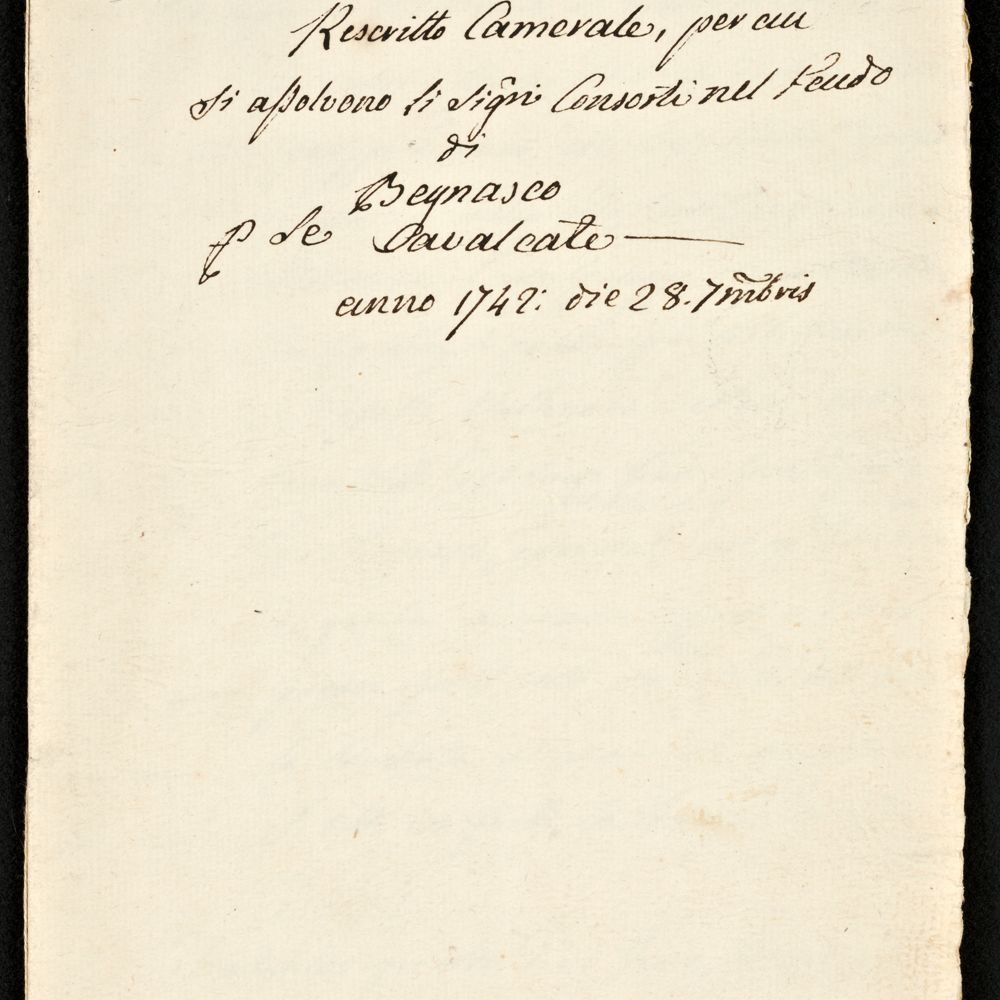 Rescritto Camerale, per cui
si assolvono li Sig.ri Consorti nel Feudo
di
Begnasco
p le Cavalcate
anno 1742: die 28. 7mbris